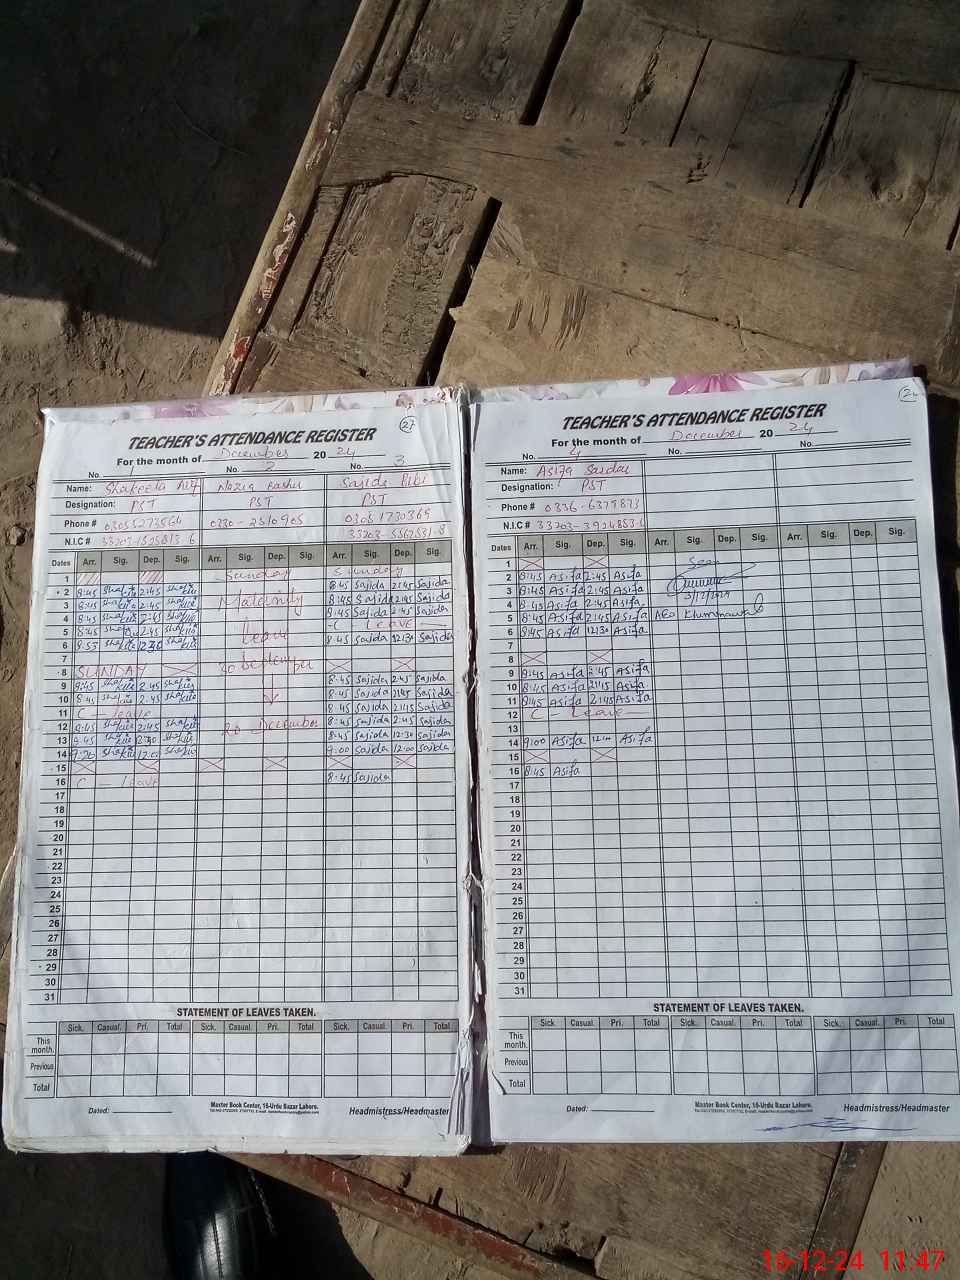 27
TEACHER'S ATTENDANCE REGISTER
For the month of December 20 24
No. 1 No. 2 No. 3
Name: Shakeela Nazia Bashir Sajida Bibi
Designation: PST PST PST
Phone # 03055273564 0330-2510905 03051730369
N.I.C # 33203-1525813-6 33203-5562531-8
Dates Arr. Sig. Dep. Sig. Arr. Sig. Dep. Sig. Arr. Sig. Dep. Sig.
1 Sunday Sunday
2 8:45 2:45 8:45 Sajida 2:45 Sajida
3 8:45 2:45 Maternity 8:45 Sajida 2:45 Sajida
4 8:45 2:45 8:45 Sajida 2:45 Sajida
5 8:45 2:45 leave C Leave
6 8:53 12:30 8:45 Sajida 12:30 Sajida
7
8 SUNDAY
9 8:45 2:45 8:45 Sajida 2:45 Sajida
10 8:45 2:45 8:45 Sajida 2:45 Sajida
11 C leave 8:45 Sajida 2:45 Sajida
12 8:45 2:45 20 December 8:45 Sajida 2:45 Sajida
13 8:45 12:30 8:45 Sajida 12:30 Sajida
14 12:00 9:00 Sajida 12:00 Sajida
15
16 C leave 8:45 Sajida
17
18
19
20
21
22
23
24
25
26
27
28
29
30
31
STATEMENT OF LEAVES TAKEN.
Sick. Casual. Pri. Total Sick. Casual. Pri. Total Sick. Casual. Pri. Total
This month.
Previous
Total
Dated:
Master Book Center, 16-Urdu Bazar Lahore.
Headmistress/Headmaster
TEACHER'S ATTENDANCE REGISTER
For the month of December 20 24
No. 4 No. No.
Name: Asifa Sardar
Designation: PST
Phone # 0336-6379873
N.I.C # 33203-3924853-6
Dates Arr. Sig. Dep. Sig. Arr. Sig. Dep. Sig. Arr. Sig. Dep. Sig.
1 Seen
2 8:45 Asifa 2:45 Asifa
3 8:45 Asifa 2:45 Asifa
4 8:45 Asifa 2:45 Asifa
5 8:45 Asifa 2:45 Asifa AEO
6 8:45 Asifa 12:30 Asifa
7
8
9 8:45 Asifa 2:45 Asifa
10 8:45 Asifa 2:45 Asifa
11 8:45 Asifa 2:45 Asifa
12 C Leave
13
14 9:00 Asifa Asifa
15
16 8:45 Asifa
17
18
19
20
21
22
23
24
25
26
27
28
29
30
31
STATEMENT OF LEAVES TAKEN.
Sick. Casual. Pri. Total Sick. Casual. Pri. Total Sick. Casual. Pri. Total
This month.
Previous
Total
Dated:
Master Book Center, 16-Urdu Bazar Lahore.
Headmistress/Headmaster
16-12-24 11:47